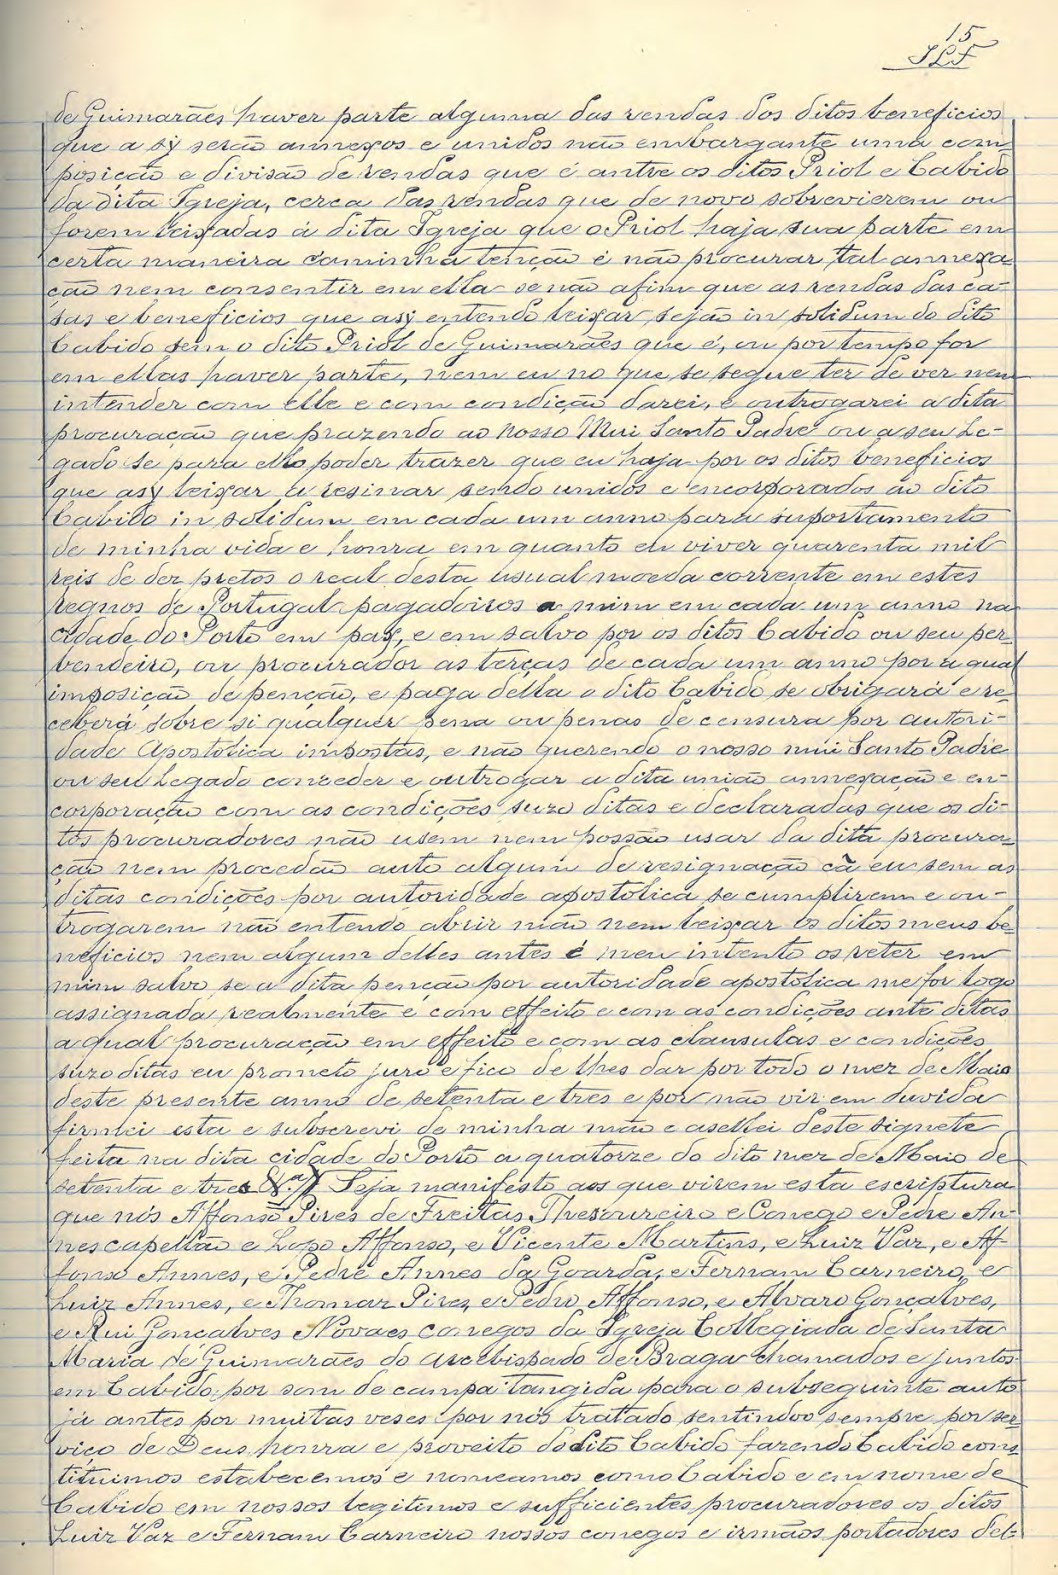 15
JLF
de Guimarães haver parte alguma das rendas dos ditos beneficios
que a sy serão annexos e unidos não embargante uma com-
posição e divisão de rendas que é antre os ditos Priol e Cabido
da dita Igreja, cerca das rendas que de novo sobrevierem ou
forem leixadas á dita Igreja que o Priol haja sua parte em
certa maneira ca minha tenção é não procurar tal annexa-
ção nem consentir em ella senão afim que as rendas das ca-
sas e beneficios que asy entendo leixar sejão in solidum do dito
Cabido sem o dito Priol de Guimarães que é, ou por tempo for
em ellas haver parte, nem eu no que se segue ter de ver nem
intender com elle e com condição darei, e outrogarei a dita
procuração que prazendo ao Nosso Mui Santo Padre ou a seu Le-
gado se para ello poder trazer que eu haja por os ditos beneficios
que asy leixar a resinar sendo unidos e encorporados ao dito
Cabido in solidum em cada um anno para suportamento
de minha vida e honra em quanto eu viver quarenta mil
reis de dez pretos o real desta usual moeda corrente em estes
regnos de Portugal pagadoiros a mim em cada um anno na
cidade do Porto em paz, e em salvo por os ditos Cabido ou seu per-
bendeiro, ou procurador as terças de cada um anno por a qual
imposição de penção, e paga della o dito Cabido se obrigará e re-
ceberá sobre si qualquer pena ou penas de censura por autori-
dade Apostolica impostas, e não querendo o nosso mui Santo Padre
ou seu Legado conceder e outrogar a dita união annexação e en-
corporação com as condições suzo ditas e declaradas que os di-
tos procuradores não usem nem possão usar da dita procura-
ção nem procedão auto algum de resignação cã eu sem as
ditas condições por autoridade apostolica se cumplirem e ou-
trogarem não entendo abrir mão nem leixar os ditos meus be-
neficios nem algum delles antes é meu intento os reter em
mim salvo se a dita penção por autoridade apostolica me for logo
assignada realmente e com effeito e com as condições ante ditas
a qual procuração em effeito e com as clausulas e condições
suzo ditas eu prometo juro e fico de lhes dar por todo o mez de Maio
deste presente anno de setenta e tres e por não vir em duvida
firmei esta e subscrevi de minha mão e asellei deste signete
feita na dita cidade do Porto a quatorze do dito mez de Maio de
setenta e tres &.ª) Seja manifesto aos que virem esta escriptura
que nós Affonso Pires de Freitas Thesoureiro e Conego e Pedre An-
nes capellão e Lopo Affonso, e Vicente Martins, e Luiz Vaz, e Af-
fonso Annes, e Pedre Annes da Goarda, e Fernam Carneiro, e
Luiz Annes, e Thomaz Pires, e Pedro Affonso, e Alvaro Gonçalves,
e Rui Gonçalves Novaes conegos da Igreja Collegiada de Santa
Maria de Guimarães do arcebispado de Braga chamados e juntos
em Cabido por som de campa tangida para o subseguinte auto
já antes por muitas veses por nós tratado sentindoo sempre por ser-
viço de Deus honra e proveito do dito Cabido fazendo Cabido cons-
tituimos estabecemos e nomeamos como Cabido e em nome de
Cabido em nossos legitimos e sufficientes procuradores os ditos
Luiz Vaz e Fernam Carneiro nossos conegos e irmãos portadores del-